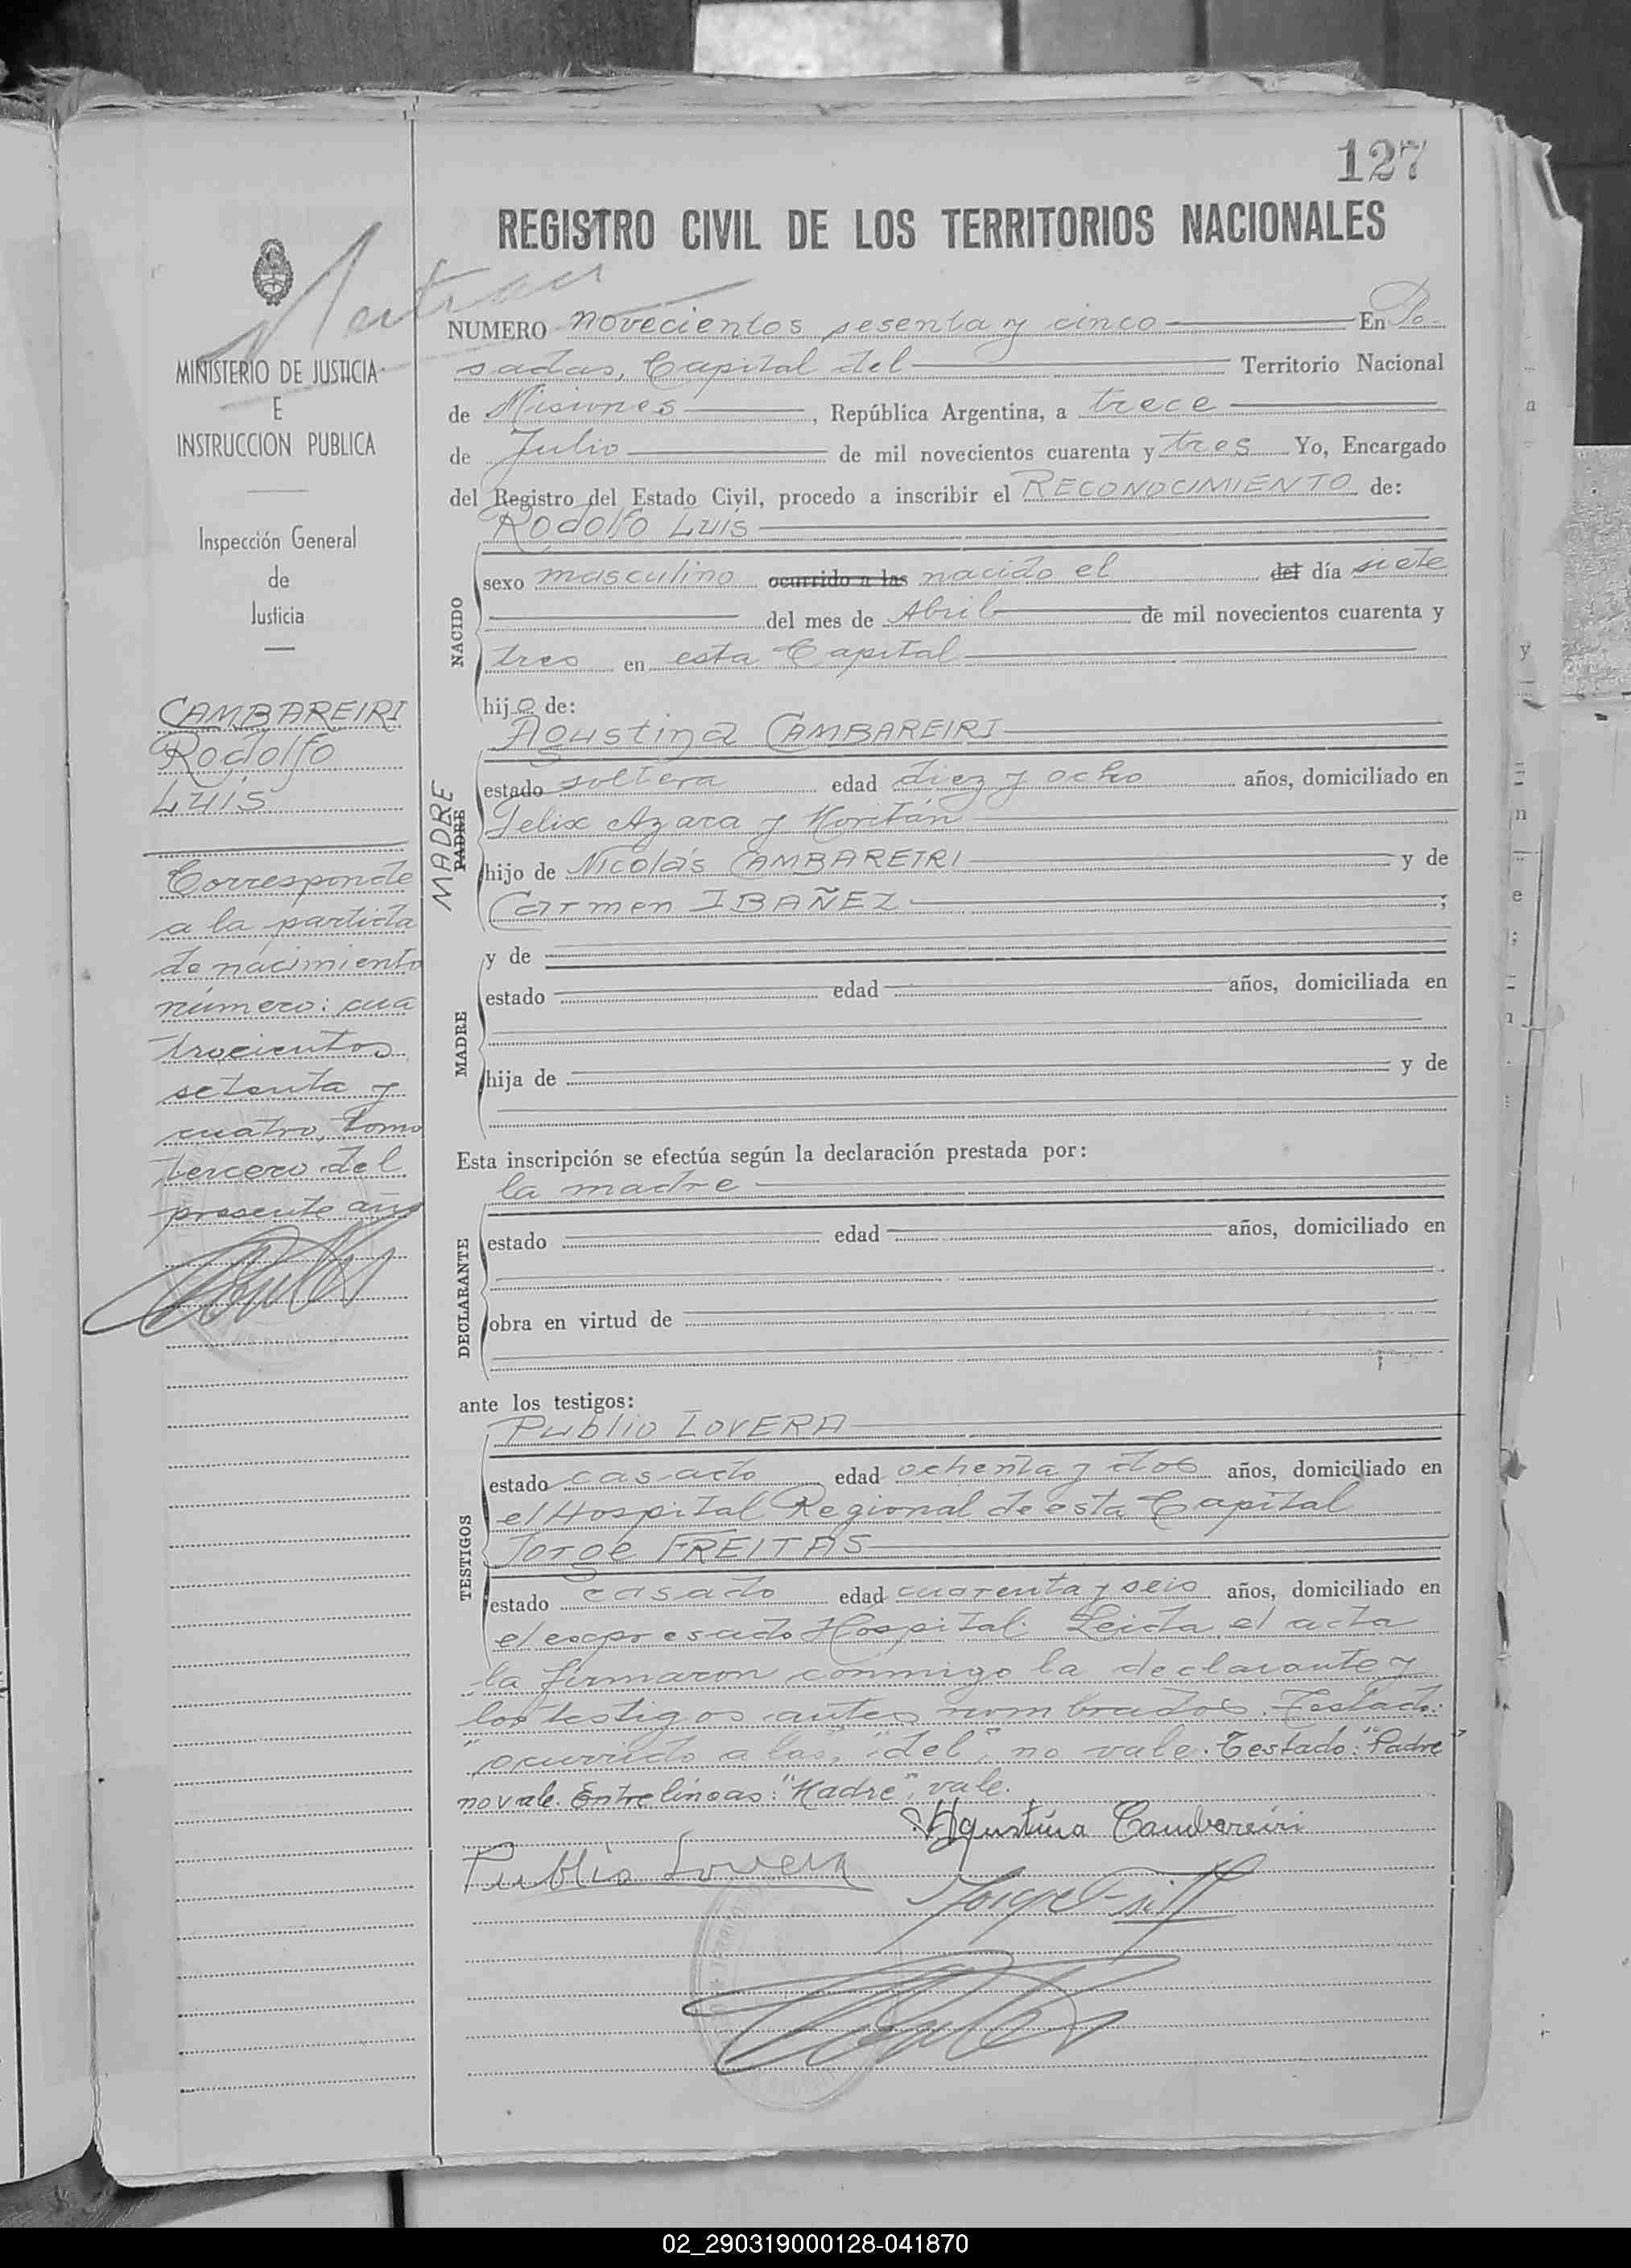 127
REGISTRO CIVIL DE LOS TERRITORIOS NACIONALES
MINISTERIO DE JUSTICIA
E
INSTRUCCION PUBLICA
Inspección General
de
Justicia
CAMBAREIRI
Rodolfo
Luis
Corresponde
a la partida
de nacimiento
número: cua
trocientos
setenta y
cuatro, tomo
tercero del
presente año
NUMERO novecientos sesenta y cinco En Po-
sadas, Capital del Territorio Nacional
de Misiones, República Argentina, a trece
de Julio de mil novecientos cuarenta y tres Yo, Encargado
del Registro del Estado Civil, procedo a inscribir el RECONOCIMIENTO de:
Rodolfo Luis
NACIDO
sexo masculino ocurrido a las nacido el del día siete
del mes de Abril de mil novecientos cuarenta y
tres en esta Capital
hijo de:
Agustina CAMBAREIRI
MADRE
PADRE
estado soltera edad diez y ocho años, domiciliado en
Felix Azara y Moritán
hijo de Nicolás CAMBAREIRI y de
Carmen IBAÑEZ ;
y de
MADRE
estado edad años, domiciliada en
hija de y de
Esta inscripción se efectúa según la declaración prestada por:
la madre
DECLARANTE
estado edad años, domiciliado en
obra en virtud de
ante los testigos:
Publio LOVERA
TESTIGOS
estado casado edad ochenta y dos años, domiciliado en
el Hospital Regional de esta Capital
Jorge FREITAS
estado casado edad cuarenta y seis años, domiciliado en
el expresado Hospital. Leida el acta
la firmaron conmigo la declarante y
los testigos antes nombrados. Testado:
"ocurrido a las", "del", no vale. Testado: "Padre"
no vale. Entre lineas: "Madre", vale.
Agustina Cambareiri
Publio Lovera
02_290319000128-041870